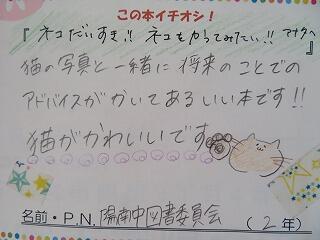 この本イチオシ!
『ネコだいすき!! ネコをかってみたい!! アナタへ
猫の写真と一緒に将来のことでの
アドバイスがかいてあるいい本です!!
猫がかわいいです
名前・P.N. 陽南中図書委員会 (2年)